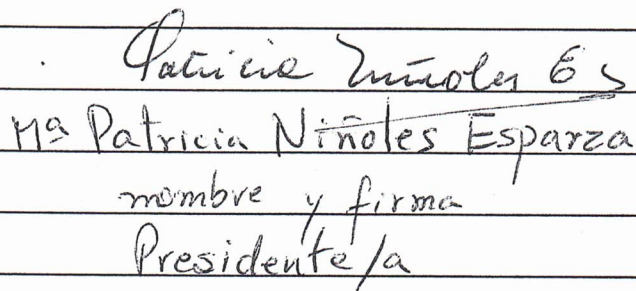 Patricia Niñoles Es
Mª Patricia Niñoles Esparza
nombre y firma
Presidente/a